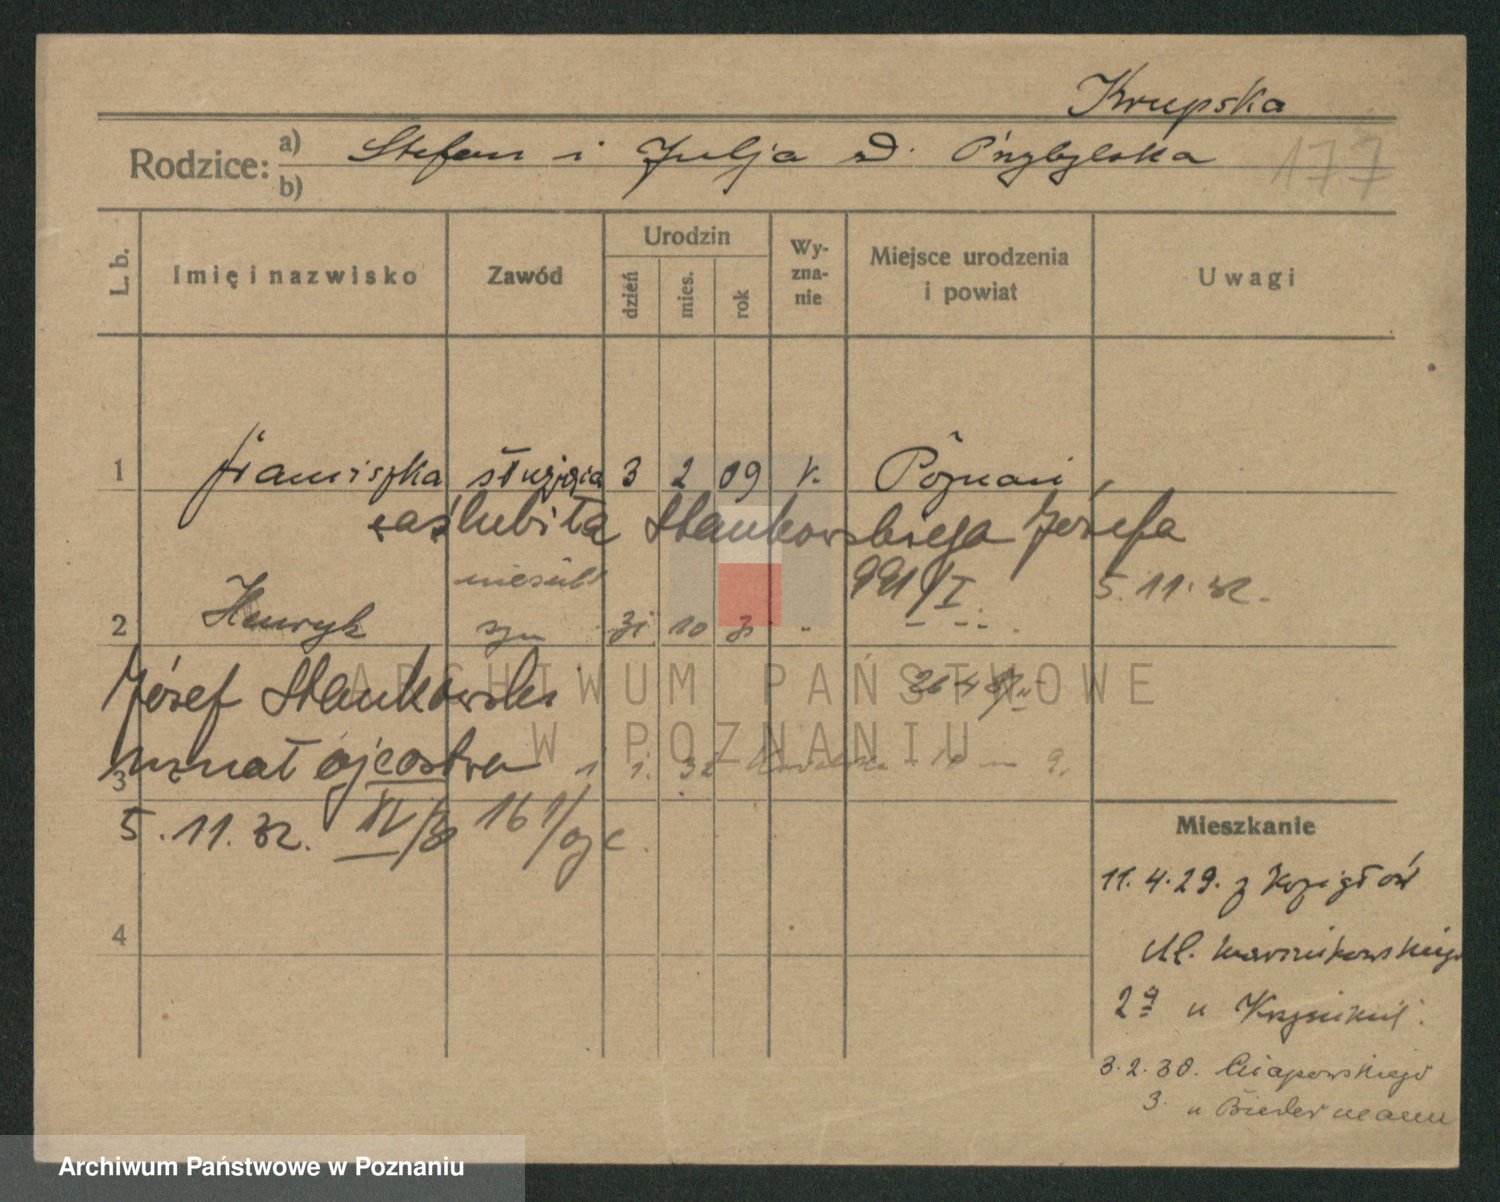 Krupska
Rodzice: a) Stefan i Julja d. Przybylska
b)
177
L. b.
Imię i nazwisko
Zawód
Urodzin
dzień
mies.
rok
Wy-
zna-
nie
Miejsce urodzenia
i powiat
Uwagi
1 Franciszka służąca 3 2 09 k. Poznań
zaślubiła Stankowskiego Józefa
991/I 5.11.32.
2 Henryk syn 31 10 31 -
Józef Stankowski
26.4
ARCHIWUM PAŃSTWOWE
W POZNANIU
3 uznał ojcostwo 1 1. 32
5.11.32. 161/ojc.
Mieszkanie
11.4.29. z Kozigłów
4
Ul. Marcinkowskiego
2a u
3.2.30. Chłapowskiego
3. u Biedermann
Archiwum Państwowe w Poznaniu